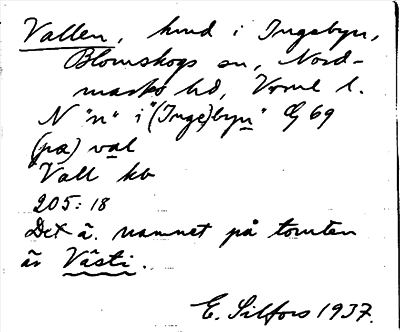 Vallen, hmd i Ingebyn,
Blomskogs sn, Nord-
marks hd, Vrml l.
N "n" i "(Inge)byn" G 69
(pæ) val
Vall kb
205:18
Det ä. namnet på tomten
är Västi.
E. Silfors 1937.